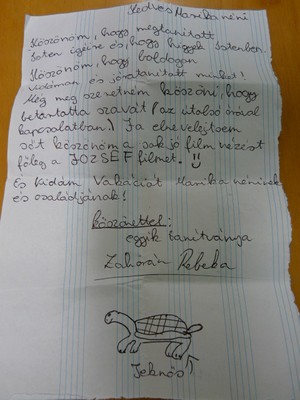 Kedves Marika néni
Köszönöm, hogy megtanított
Isten igéire és, hogy higyjek Istenben.
Köszönöm, hogy boldogan
vidáman és jóra tanított minket!
Még meg szeretném köszöni, hogy
betartotta szavát (az utolsó órával
kapcsolatban.) Ja el ne felejtsem
sőt köszönöm a sok jó film nézést
főleg a JÓZSEF filmet.
És Vidám Vakációt Marika néninek
és családjának!
köszönettel:
egyik tanítványa
Zahorán Rebeka
Teknős